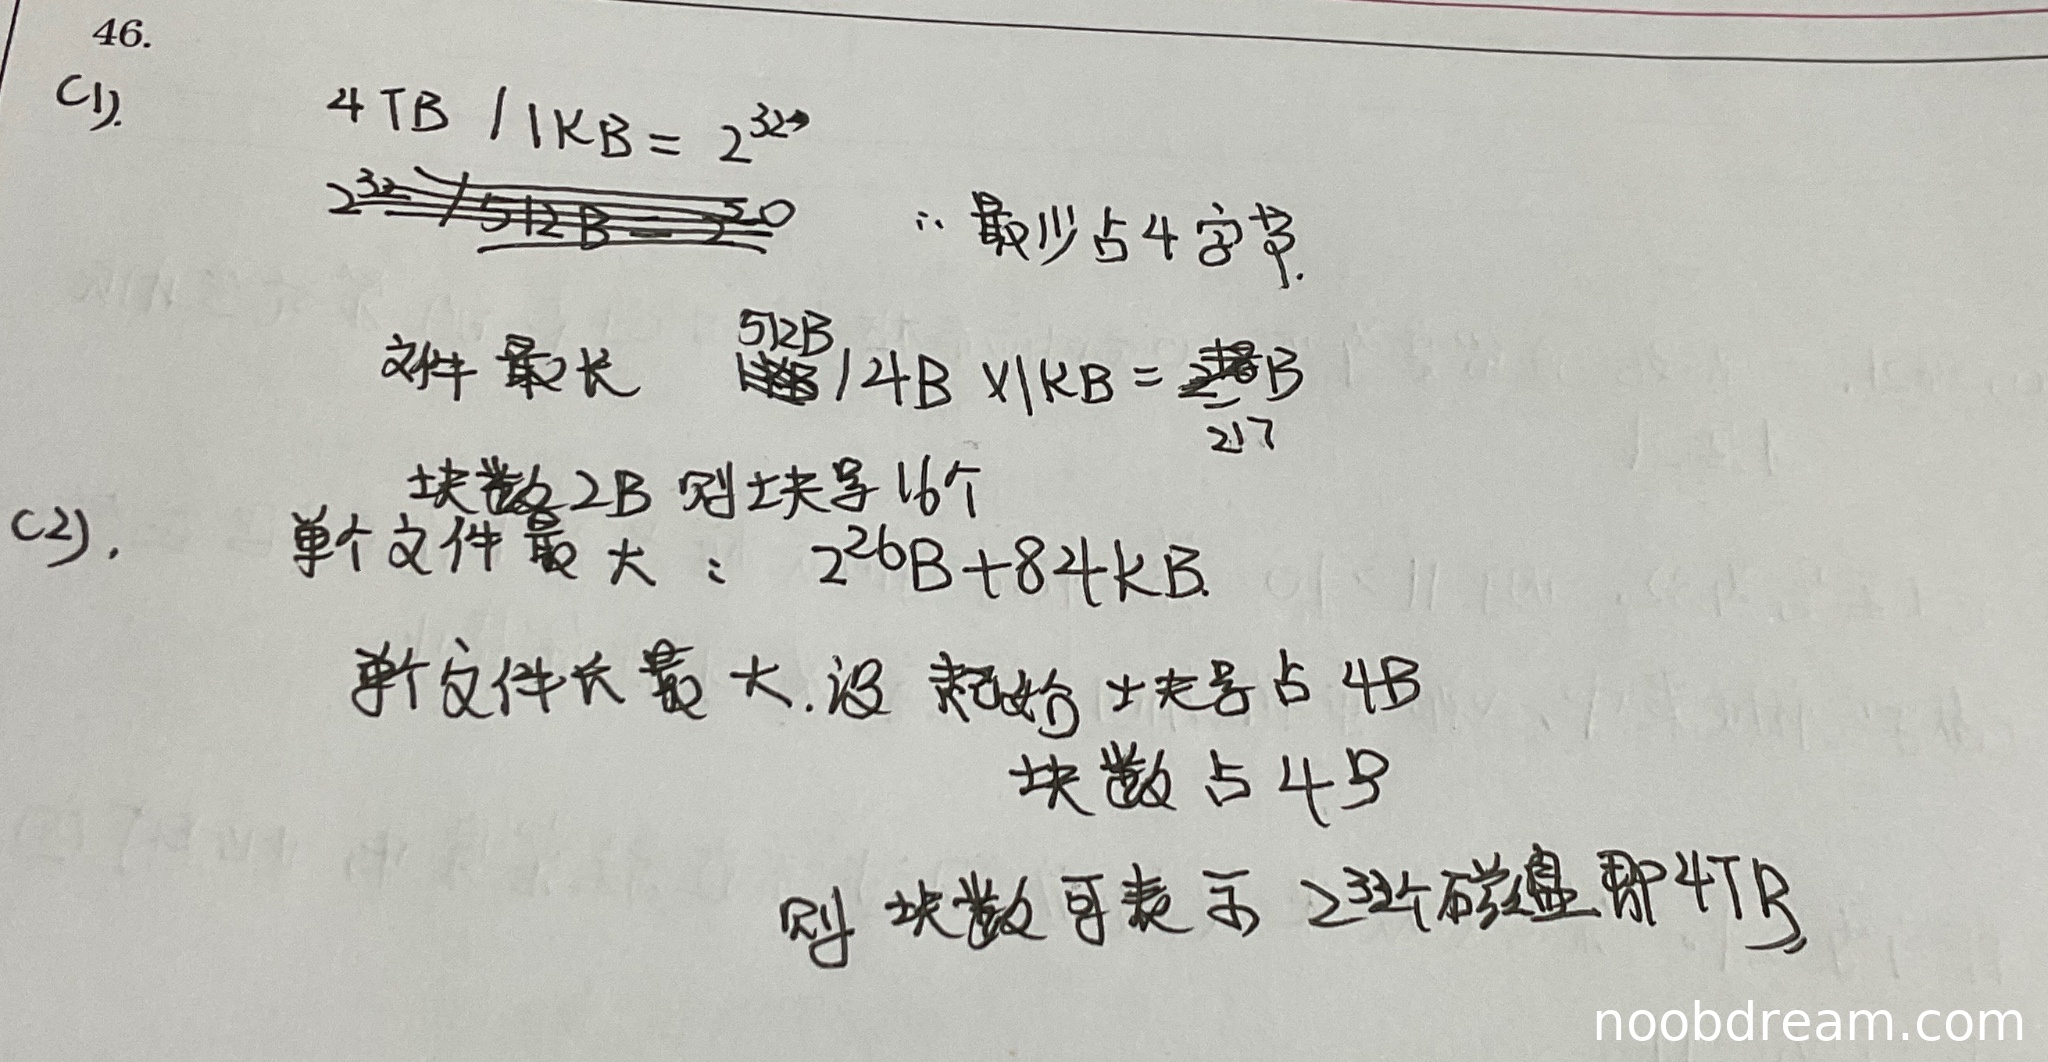 46.
(1).
4TB / 1KB = 2^32
2^32 / 512B = 2^30
∴ 最少占4字节.
文件最长 512B / 4B × 1KB = 2^17 B
块数2B 则块号16个
(2).
单个文件最大: 2^26B+84KB.
单个文件长最大.设 起始块号占4B
块数占4B
则 块数可表示 2^32个磁盘即4TB,
noobdream.com